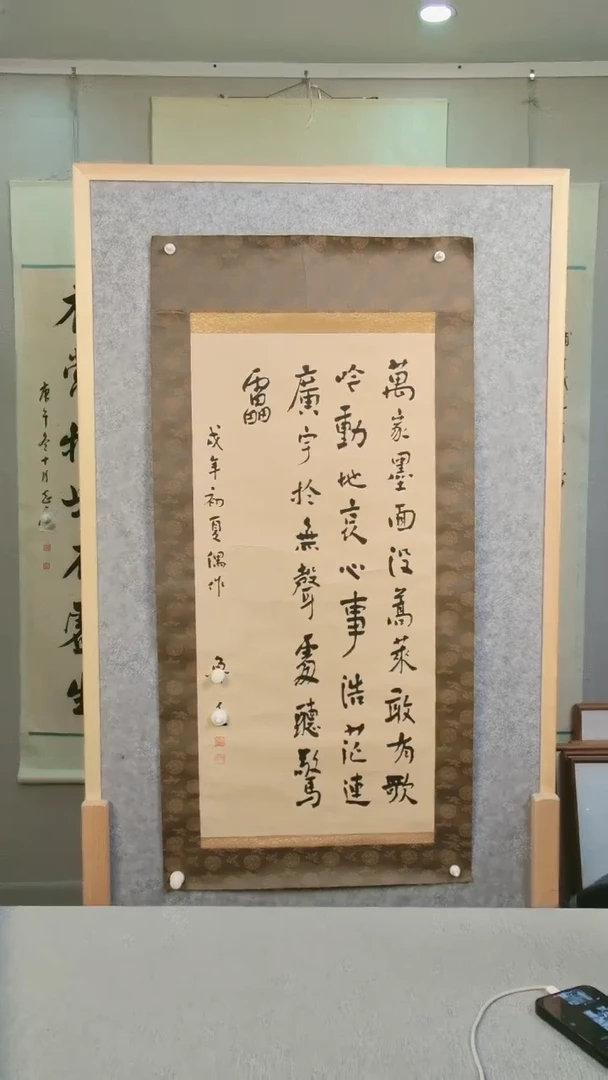 萬家墨面没蒿萊敢有歌
吟動地哀心事浩茫連
廣宇於無聲處聽驚
靁
戊年初夏偶作
庚午冬十月